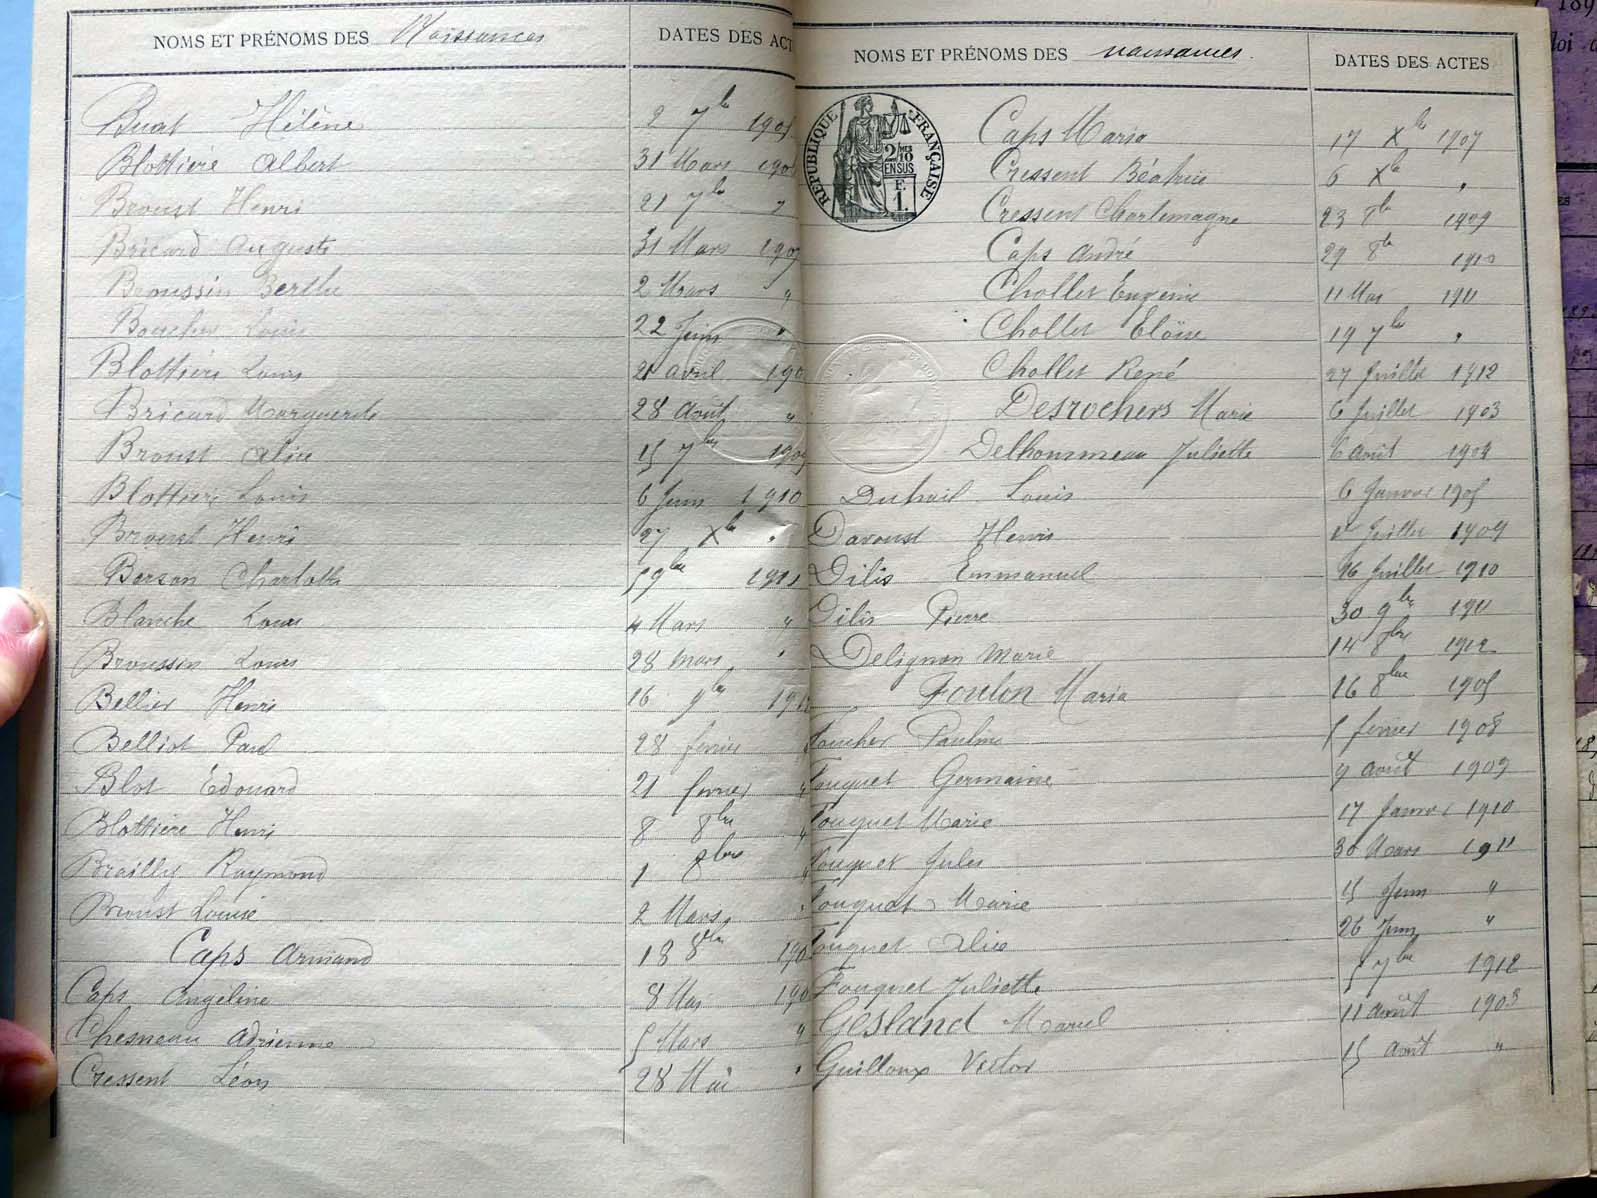 NOMS ET PRÉNOMS DES Naissances DATES DES ACT
Buat Hélène 2 7bre
Blottière Albert 31 Mars
Broust Henri 21 7bre "
Bricard Auguste 31 Mars 1907
Broussin Berthe 2 Mars "
Louis 22 Juin "
Blottière Louis 21 avril 190
Bricard Marguerite 28 Août "
Broust Alice 15 7bre 1909
Blottière Louis 6 Juin 1910
Broust Henri 27 Xbre "
Berson Charlotte 5 9bre 1911
Blanche Louis 4 Mars "
Broussin Louis 28 Mars "
Bellier Henri 16 9bre 191
Belliot Paul 28 février "
Blot Édouard 21 février "
Blottière Henri 8 8bre "
Brailly Raymond 1 8bre "
Broust Louise 2 Mars "
Caps Armand 18 8bre 190
Caps Angéline 8 Mai 190
Chesneau Adrienne 5 Mars "
Cressent Léon 28 Mai "
NOMS ET PRÉNOMS DES naissances. DATES DES ACTES
RÉPUBLIQUE FRANÇAISE
2/10 MES
EN SUS
F.
1.
Caps Maria 17 Xbre 1907
Cressent Béatrice 6 Xbre "
Cressent Charlemagne 23 1909
Caps André 29 8bre 1910
Chollet Eugénie 11 Mai 1911
Chollet Éloïse 19 7bre "
Chollet René 27 Juillet 1912
Desrochers Marie 6 Juillet 1903
Delhommeau Juliette 6 août 1904
Dutrail Louis 6 Janvier 1905
Davoust Henri Juillet 1909
Dilis Emmanuel 16 Juillet 1910
Dilis Pierre 30 9bre 1911
Delignon Marie 14 8bre 1912
Foulon Maria 16 8bre 1905
Foucher Pauline 5 février 1908
Fouquet Germaine 9 août 1909
Fouquet Marie 17 Janvier 1910
Fouquet Jules 30 Mars 1911
Fouquet Marie 15 Juin "
Fouquet Alice 26 Juin "
Fouquet Juliette 5 7bre 1912
Gesland Marcel 11 août 1903
Guilloux Victor 15 août "